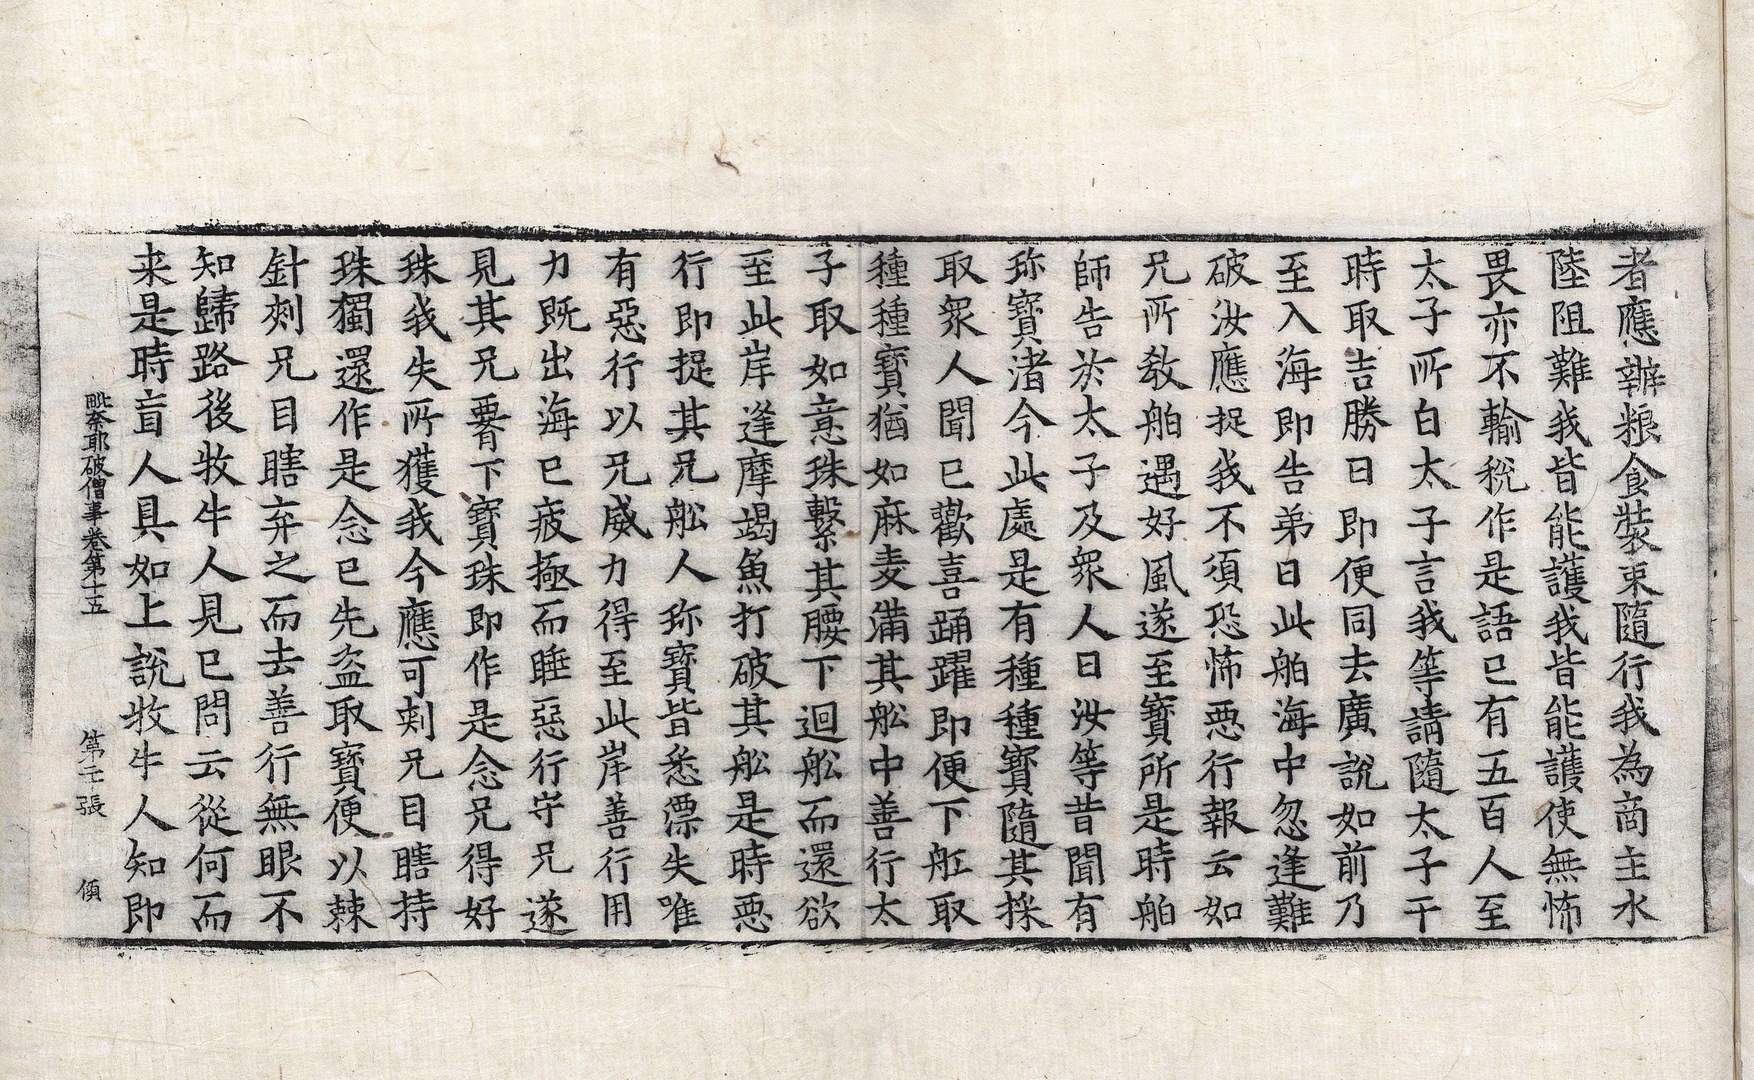 者應辦粮食裝束隨行我為商主水
陸阻難我皆能護我皆能護使無怖
畏亦不輸稅作是語已有五百人至
太子所白太子言我等請隨太子干
時取吉勝日即便同去廣說如前乃
至入海即告弟曰此舶海中忽逢難
破汝應捉我不須恐怖惡行報云如
兄所教舶遇好風遂至寶所是時舶
師告於太子及衆人曰汝等昔聞有
珎寶渚今此處是有種種寶隨其採
取衆人聞已歡喜踊躍即便下舡取
種種寶猶如麻麦滿其舩中善行太
子取如意珠繫其腰下迴舩而還欲
至此岸逢摩竭魚打破其舩是時惡
行即捉其兄舩人珎寶皆悉漂失唯
有惡行以兄威力得至此岸善行用
力既出海已疲極而睡惡行守兄遂
見其兄䐴下寶珠即作是念兄得好
珠我失所獲我今應可刺兄目瞎持
珠獨還作是念已先盜取寶便以棘
針刺兄目瞎弃之而去善行無眼不
知歸路後牧牛人見已問云從何而
来是時盲人具如上說牧牛人知即
毗奈耶破僧事卷第十五 第二十張 傾